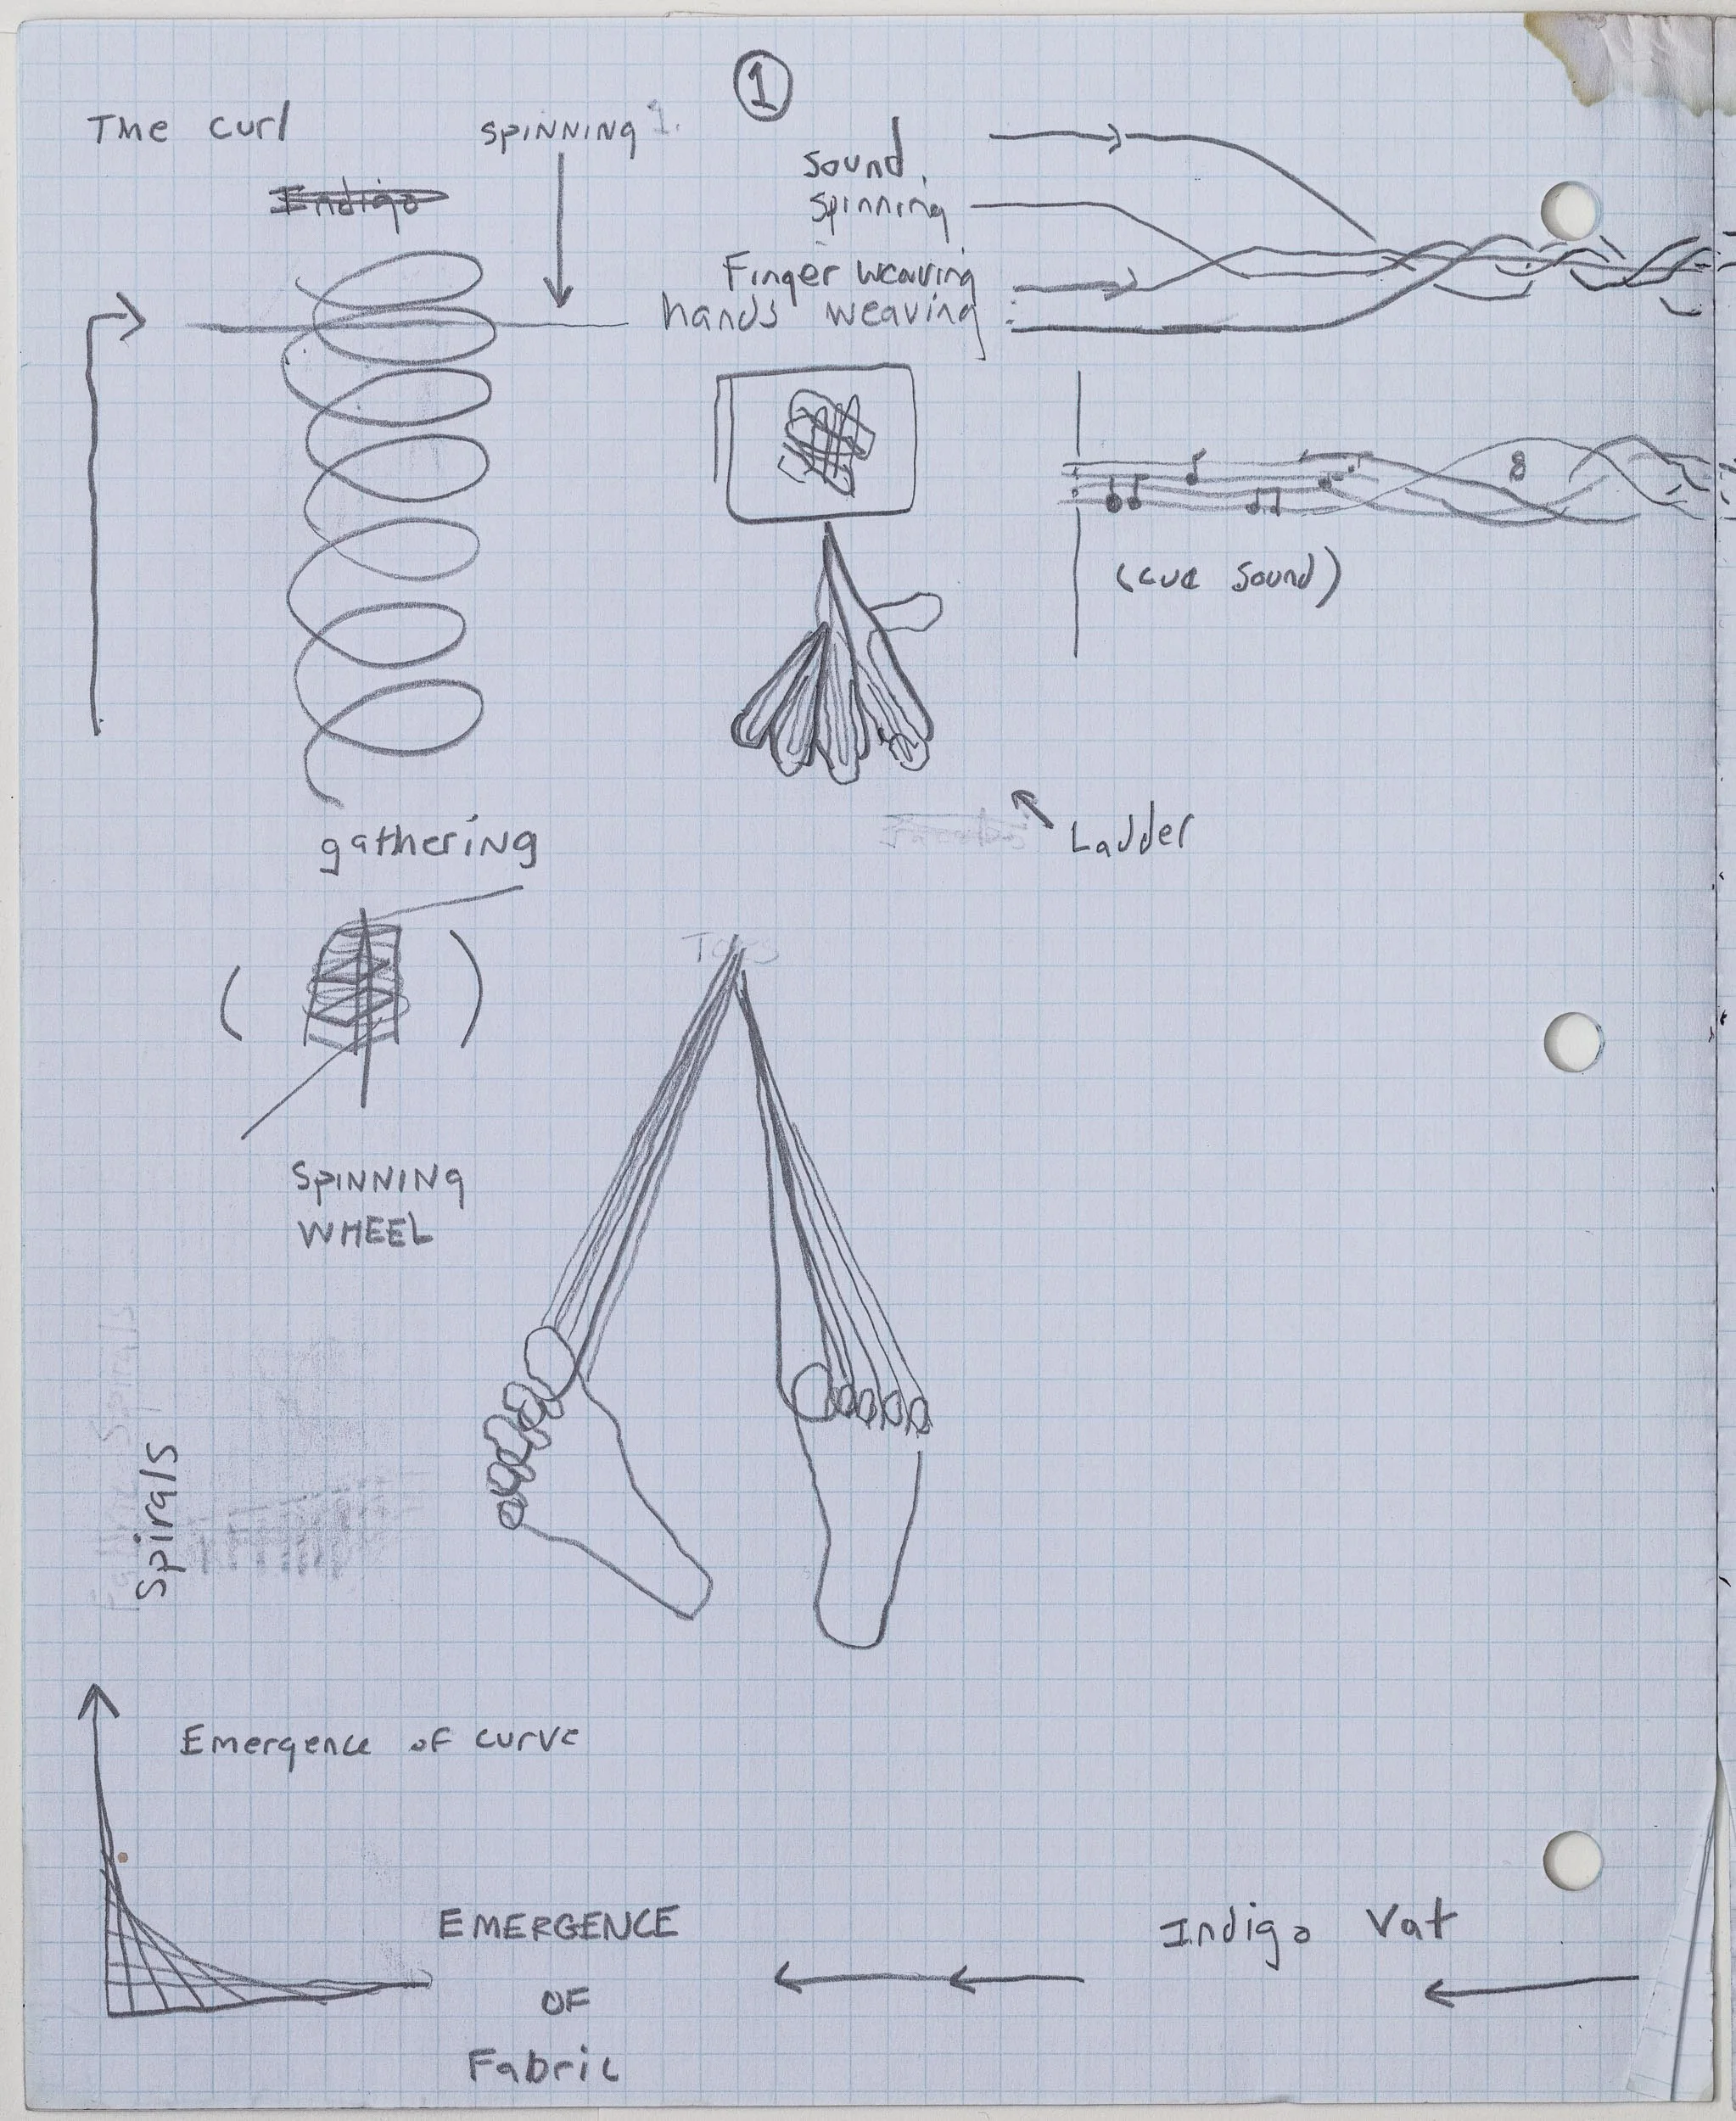 1
The curl
SPINNING
Indigo
Sound
Spinning
Finger weaving
hands weaving
(cue sound)
Ladder
gathering
Toes
SPINNING
WHEEL
Spirals
Emergence of curve
EMERGENCE
OF
Fabric
Indigo Vat